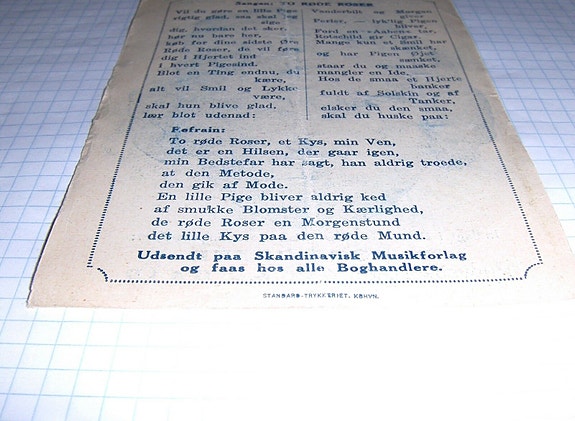 Sangen: TO RØDE ROSER
Vil du gøre en lille Pige
rigtig glad, saa skal jeg
sige
dig, hvordan det sker,
hør nu bare her,
køb for dine sidste Øre
Røde Roser, de vil føre
dig i Hjertet ind
i hvert Pigesind.
Blot en Ting endnu, du
kære,
alt vil Smil og Lykke
være,
skal hun blive glad,
lær blot udenad:
Vanderbilt og Morgan
giver
Perler, — tyk'lig Pigen
bliver,
Ford en
Rotschild gir Cigar.
Mange kun et Smil har
skænket,
og har Pigen Øjet
sænket,
staar du og maaske
mangler en Ide.
Hos de smaa et Hjerte
banker
fuldt af Solskin og af
Tanker,
elsker du den smaa,
skal du huske paa:
Refrain:
To røde Roser, et Kys, min Ven,
det er en Hilsen, der gaar igen,
min Bedstefar har sagt, han aldrig troede,
at den Metode,
den gik af Mode.
En lille Pige bliver aldrig ked
af smukke Blomster og Kærlighed,
de røde Roser en Morgenstund
det lille Kys paa den røde Mund.
Udsendt paa Skandinavisk Musikforlag
og faas hos alle Boghandlere.
STANDARD-TRYKKERIET. KBHVN.